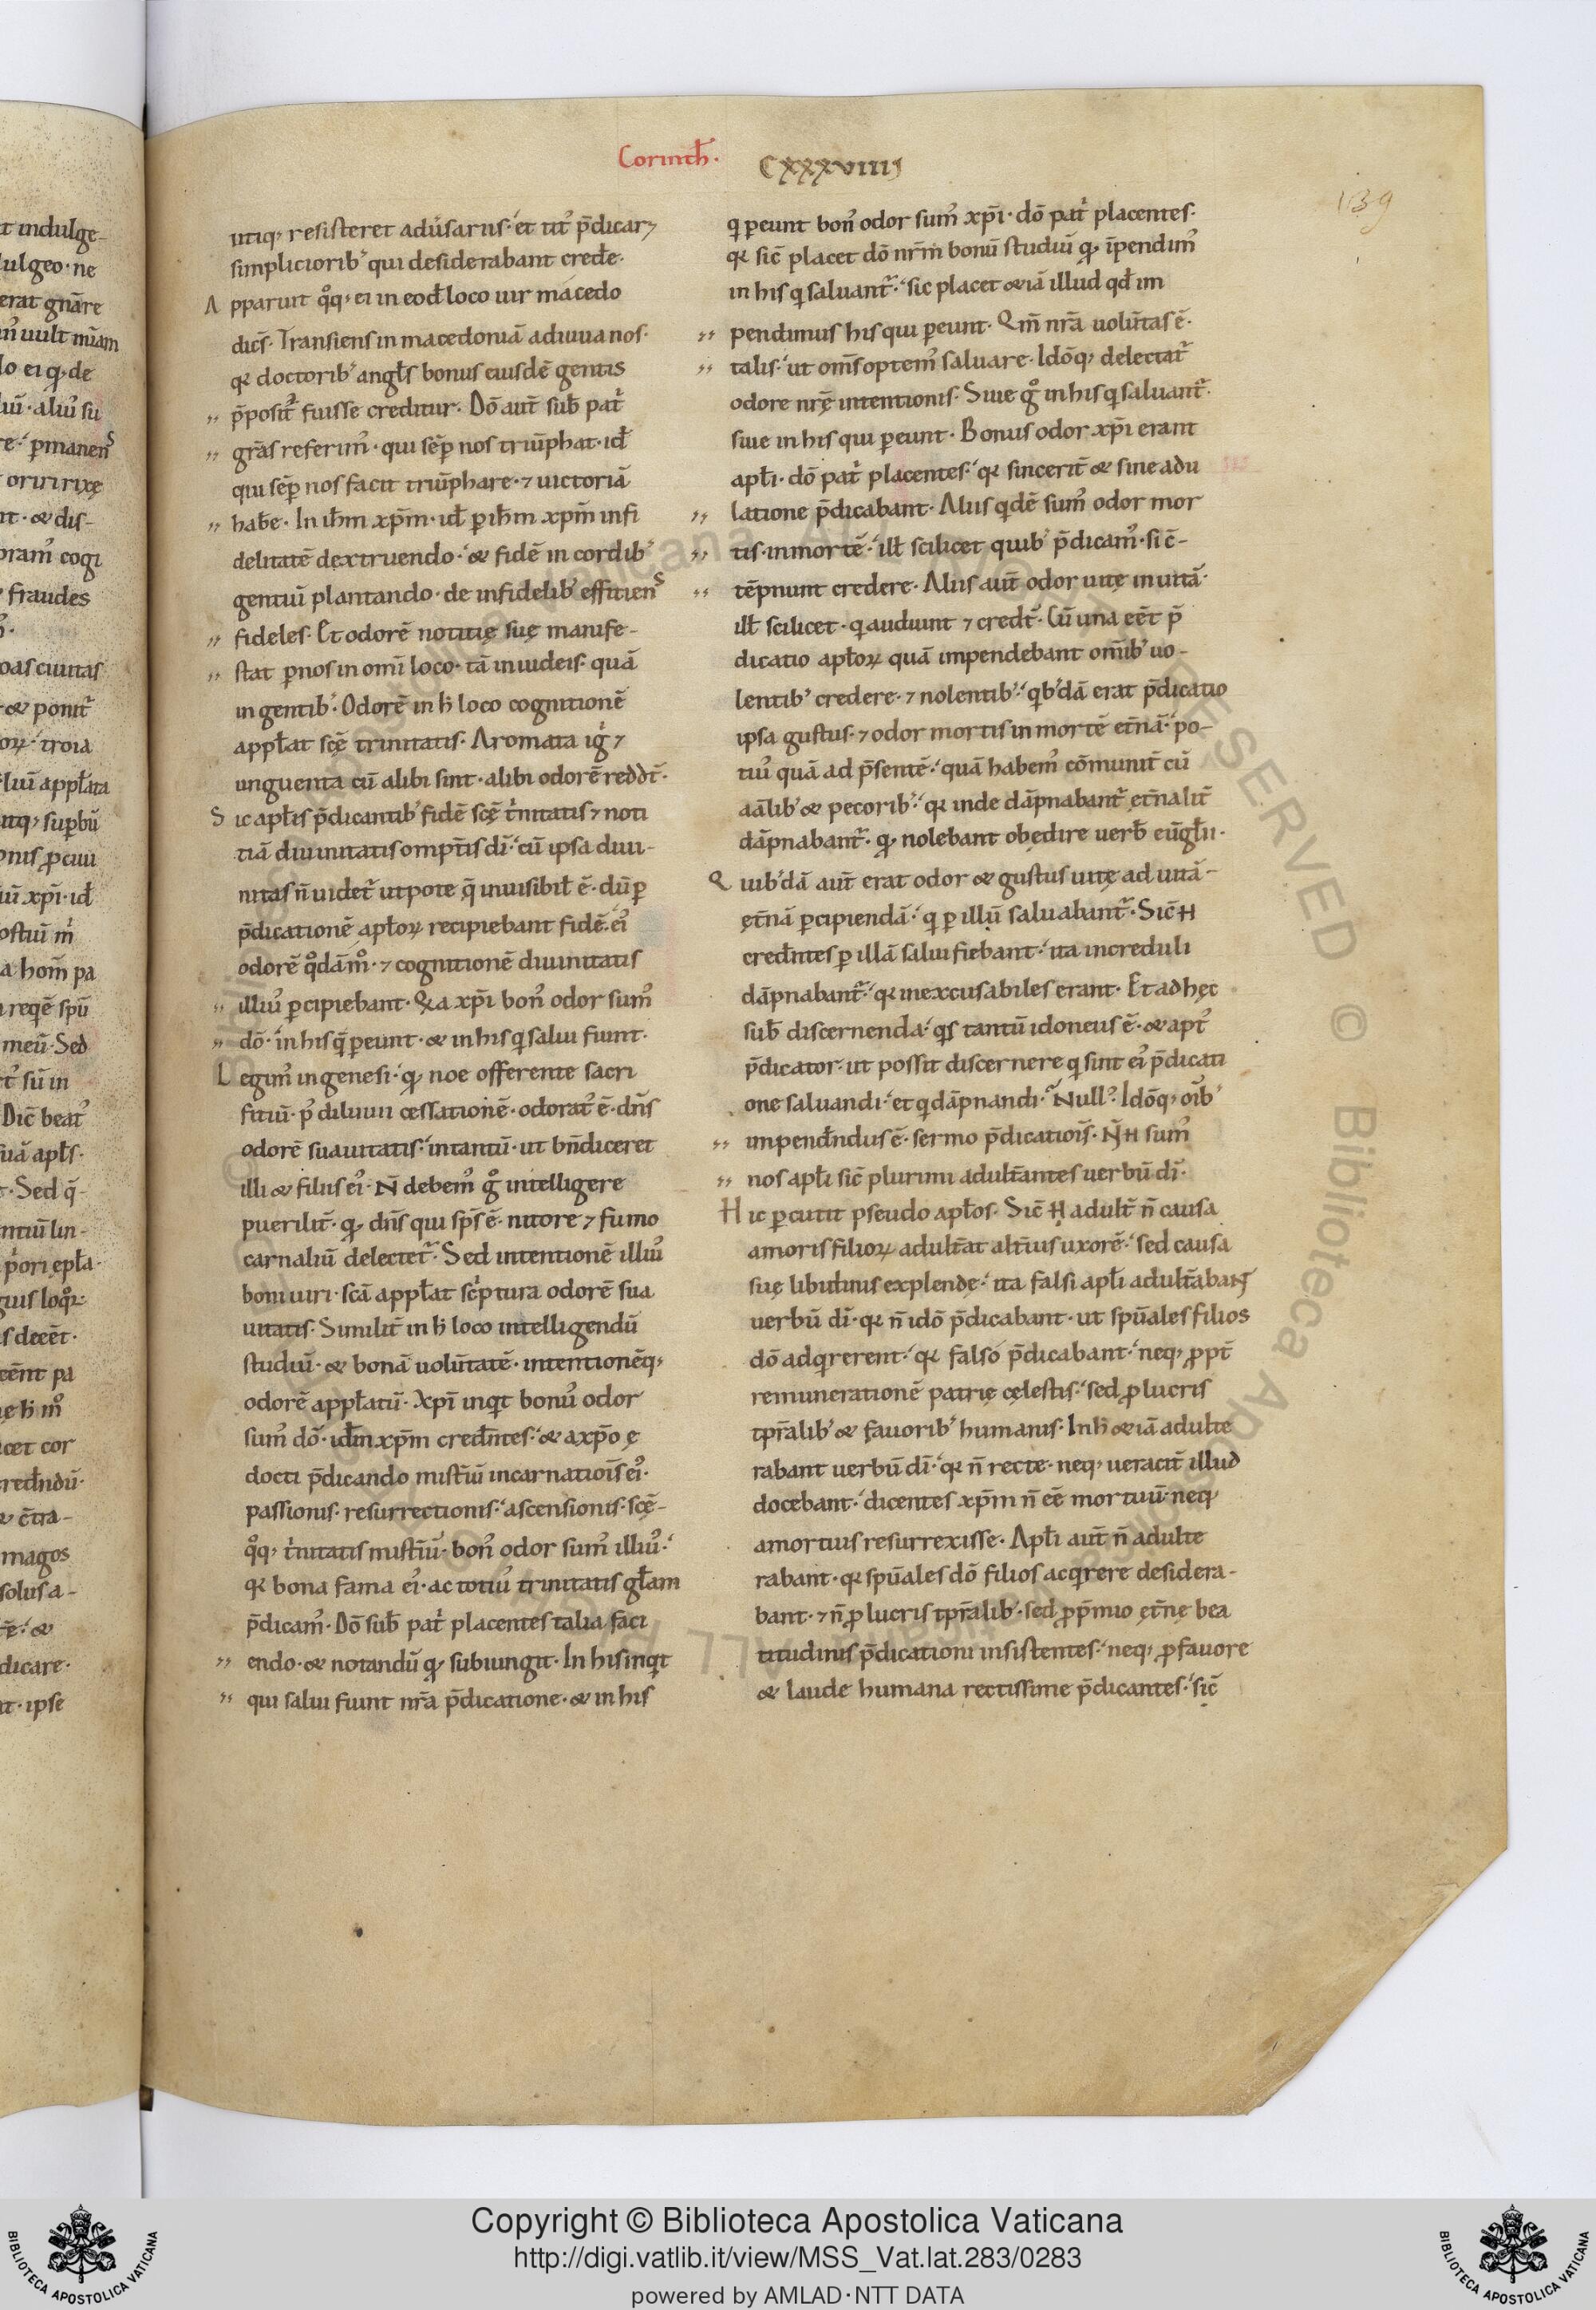 Corinth̄.
CXXXVIIII
139
utiq; resisteret adūsariis. et tūt p̄dicar&
simpliciorib; qui desiderabant crede.
Apparuit q̊q; ei in eod̄ loco uir macedo
dic̄s. Transiens in macedoniā adiuua nos.
qr doctorib; angl̄s bonus eiusdē gentis
p̄posit᷒ fuisse creditur. Dō aut̄ sub̄ pat̄
gr̄as referim᷒. qui sēp nos triūphat. id̄
qui sēp nos facit triūphare. ⁊ uictoriā
hab̄e. In ih̄m xp̄m. id̄ p ih̄m xp̄m infi
delitatē dextruendo. & fidē in cordib;
gentiū plantando. de infidelib; effitiens
fideles. Et odorē notitię suę manife-
stat p nos in om̄i loco. tā in iudeis. quā
in gentib;. Odorē in h̄ loco cognitionē
appl̄at sc̄ę trinitatis. Aromata ig̅ ⁊
unguenta cū alibi sint. alibi odorē reddt̄.
Sic apl̄is p̄dicantib; fidē sc̄ę t̄nitatis ⁊ noti
tiā diuinitatis omp̄tis dī. cū ipsa diui-
nitas n̄ uidet᷑ utpote q̄ inuisibil̄ ē. dū p
p̄dicationē apl̄oꝝ recipiebant fidē. ei᷒
odorē q̊dām̊. ⁊ cognitionē diuinitatis
illiu᷒ pcipiebant. Qia xp̄i bon᷒ odor sum᷒
dō. in his q̄ peunt. & in his q salui fiunt.
Legim᷒ in genesi. qđ noe offerente sacri
fitiū. p᷒ diluuii cessationē. odorat᷒ ē. dn̄s
odorē suauitatis. in tantū. ut bn̄diceret
illi & filiis ei᷒. N̄ debem᷒ g̊ intelligere
puerilit̄. qđ dn̄s qui sp̄s ē. nitore ⁊ fumo
carnaliū delectet᷑. Sed intentionē illiu᷒
boni uiri. sc̄ā appl̄at sc̄ptura odorē sua
uitatis. Similit̄ in h̄ loco intelligendū
studiū. & bonā uolūtatē. intentionēq;
odorē appl̄atū. Xp̄i inqt bonu᷒ odor
sum᷒ dō. id̄ in xp̄m cred̄ntes. & a xp̄o ę
docti p̄dicando mist̄iū incarnatiōis ei᷒.
passionis. resurrectionis. ascensionis. sc̄ę-
q̊q; t̄nitatis mist̄iū. bon᷒ odor sum᷒ illiu᷒.
qr bona fama ei᷒. ac totiu᷒ trinitatis gl̄am
p̄dicam᷒. Dō sub̄ pat̄ placentes talia faci
endo. & notandū qđ subiungit. In his inqt
qui salui fiunt nr̄a p̄dicatione. & in his
q peunt bon᷒ odor sum᷒ xp̄i. dō pat̄ placentes.
qr sic̄ placet dō nr̄m bonū studiū qđ īpendim᷒
in his q saluant᷑. sic placet & iā illud qd̄ im
pendimus his qui peunt. Qm̄ nr̄a uolūtas ē.
talis. ut om̄s optem᷒ saluare. Idōq; delectat᷑
odore nr̄ę intentionis. Siue g̊ in his q saluant᷑.
siue in his qui peunt. Bonus odor xp̄i erant
apl̄i. dō pat̄ placentes. qr sincerit̄ & sine adu
latione p̄dicabant. Aliis qdē sum᷒ odor mor
tis. in mortē. ill̄ scilicet quib; p̄dicam᷒. si c̄-
tēpnunt credere. Aliis aut̄ odor uitę in uitā.
ill̄ scilicet. q audiunt ⁊ credt̄. Cū una eēt p̄
dicatio apl̄oꝝ quā impendebant om̄ib; uo-
lentib; credere. ⁊ nolentib;. qb;dā erat p̄dicatio
ipsa gustus. ⁊ odor mortis in mortē et̄nā. po-
tiu᷒ quā ad p̄sentē. quā habem᷒ cōmunit̄ cū
aālib; & pecorib;. qr inde dāpnabant᷑ et̄nalit̄
dāpnabant᷑. qđ nolebant obędire uerb̄ eūgl̄ii.
Quib;dā aut̄ erat odor & gustus uitę ad uitā-
ęt̄nā pcipiendā. q p illū saluabant᷑. Sic̄ H
cred̄ntes p illā salui fiebant. ita increduli
dāpnabant᷑. qr inexcusabiles erant. Et ad hęc
sub̄ discernenda. qs tantū idoneus ē. & apt᷒
p̄dicator. ut possit discernere q sint ei᷒ p̄dicati
one saluandi. et q dāpnandi. Null᷒. Idōq; oīb;
impend̄ndus ē. sermo p̄dicatiōis. N̄ H sum᷒
nos apl̄i sic̄ plurimi adult̄antes uerbū dī.
Hic pcutit pseudo apl̄os. Sic̄ H adult̄ n̄ causa
amoris filioꝝ adult̄at alt̄ius uxorē. sed causa
suę libidinis explendę. ita falsi apl̄i adult̄abant
uerbū dī. qr n̄ idō p̄dicabant. ut sp̄uales filios
dō adqrerent. qr falso p̄dicabant. neq; ꝓpt̄
remunerationē patrię cęlestis. sed ꝓ lucris
tpr̄alib; & fauorib; humanis. In h̄ & iā adulte
rabant uerbū dī. qr n̄ recte. neq; ueracit̄ illud
docebant. dicentes xp̄m n̄ eē mortuū. neq;
a mortuis resurrexisse. Apl̄i aut̄ n̄ adulte
rabant. qr sp̄uales dō filios acqrere desidera-
bant. ⁊ n̄ ꝓ lucris tpr̄alib;. sed ꝓ p̄mio ęt̄nę bea
titudinis p̄dicationi insistentes. neq; ꝓ fauore
& laude humana rectissime p̄dicantes. sic̄
Copyright © Biblioteca Apostolica Vaticana
http://digi.vatlib.it/view/MSS_Vat.lat.283/0283
powered by AMLAD·NTT DATA